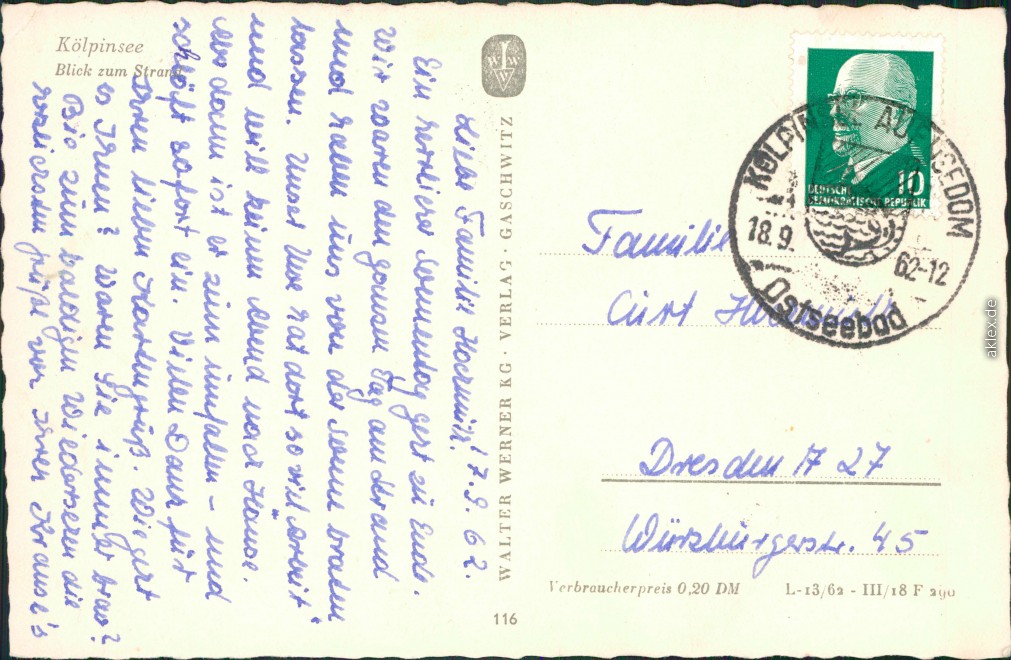 Kölpinsee
Blick zum Strand
Liebe Familie 17.9.62.
Ein herrlicher Sonnentag geht zu Ende.
Wir waren den ganzen Tag am Strand
und haben uns von der Sonne braten
lassen. Unser Uwe hat dort so viel Arbeit
und will keinen Abend nach Hause.
Also dann ist er zum umfallen - und
schläft sofort ein. Vielen Dank für
Ihren lieben Kartengruß. Wie geht
es Ihnen? Waren Sie immer brav?
Bis zum baldigen Wiedersehen die
herzlichsten Grüße von Ihren Krause's
WALTER WERNER KG · VERLAG · GASCHWITZ
W W V
116
10
DEUTSCHE
DEMOKRATISCHE REPUBLIK
KÖLPINSEE AUF USEDOM
18.9. 62-12
Ostseebad
Familie
Curt
Dresden A 27
Würzburgerstr. 45
Verbraucherpreis 0,20 DM
L-13/62 - III/18 F 290
aklex.de